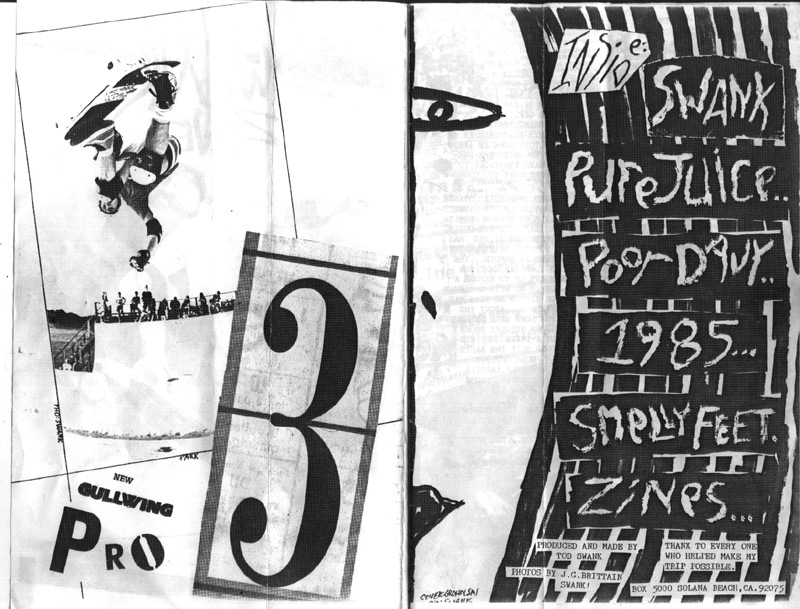 3
PHO-SWANK
PARK
NEW
GULLWING
PRO
INSiDe:
SWANK
PureJuice..
Poor DAvy..
1985...
SmellyFEET.
ZiNes...
PRODUCED AND MADE BY
TOD SWANK
PHOTOS BY J.G.BRITTAIN
SWANK!
THANX TO EVERY ONE
WHO HELPED MAKE MY
TRIP POSSIBLE.
BOX 5000 SOLANA BEACH,CA.92075